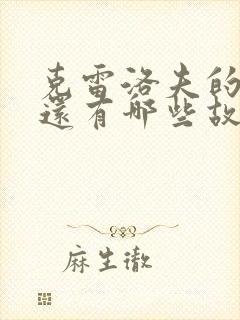 克雷洛夫的
還有哪些故
麻生徹